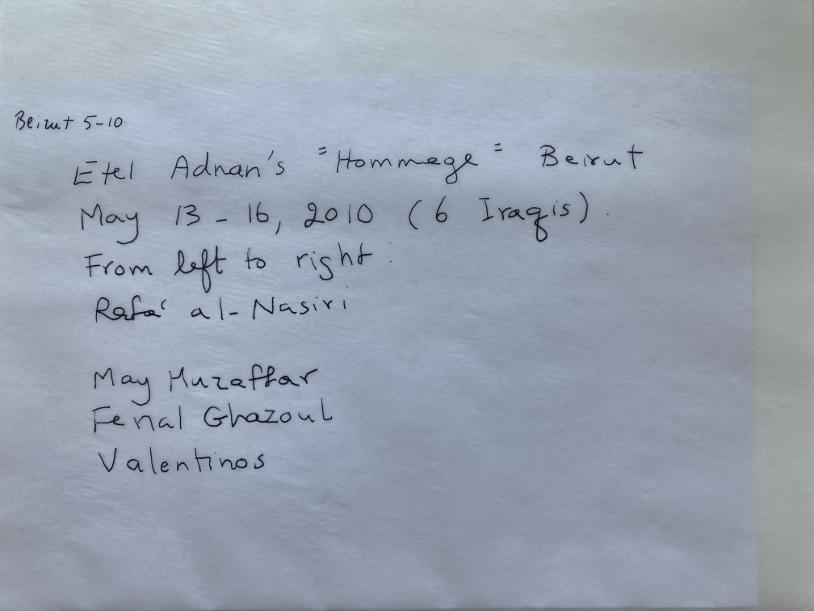 Beirut 5-10
Etel Adnan's "Hommege" Beirut
May 13 - 16, 2010 (6 Iraqis).
From left to right:
Rafa' al-Nasiri
May Muzaffar
Ferial Ghazoul
Valentinos